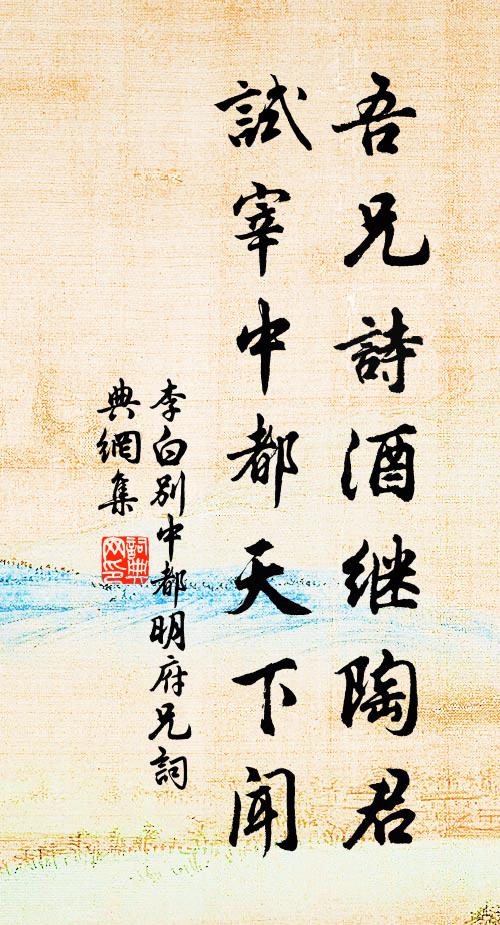 吾兄詩酒继陶君
試宰中都天下闻
李白别中都明府兄詞
典網集
詞典
网印